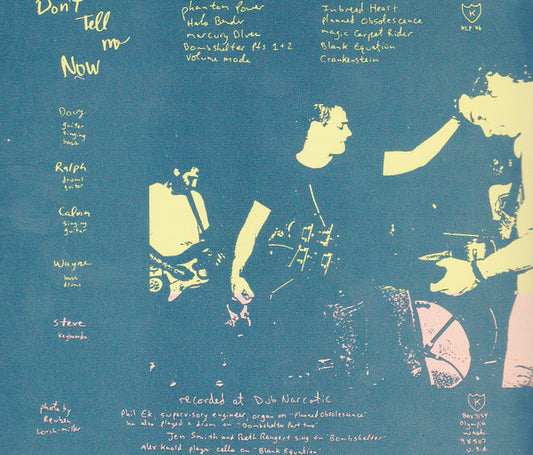 Don't
Tell
me
Now
phantom Power
Halo Bender
mercury Blues
Bombshelter pts 1+2
Volume mode
Inbred Heart
planned Obsolescence
magic Carpet Rider
Blank Equation
Crankenstein
K
KLP 46
Doug
guitar
singing
bass
Ralph
drums
guitar
Calvin
singing
guitar
Wayne
bass
drums
Steve
keyboards
photo by
Reuben
Lorch-miller
recorded at Dub Narcotic
Phil Ek, supervisory engineer, organ on "Planned Obsolescence"
he also played a drum on "Bombshelter Part two"
Jen Smith and Beth Rangert sing on "Bombshelter"
Alex Knold plays cello on "Blank Equation"
K
Box 7154
Olympia
Wash
98507
U.S.A.